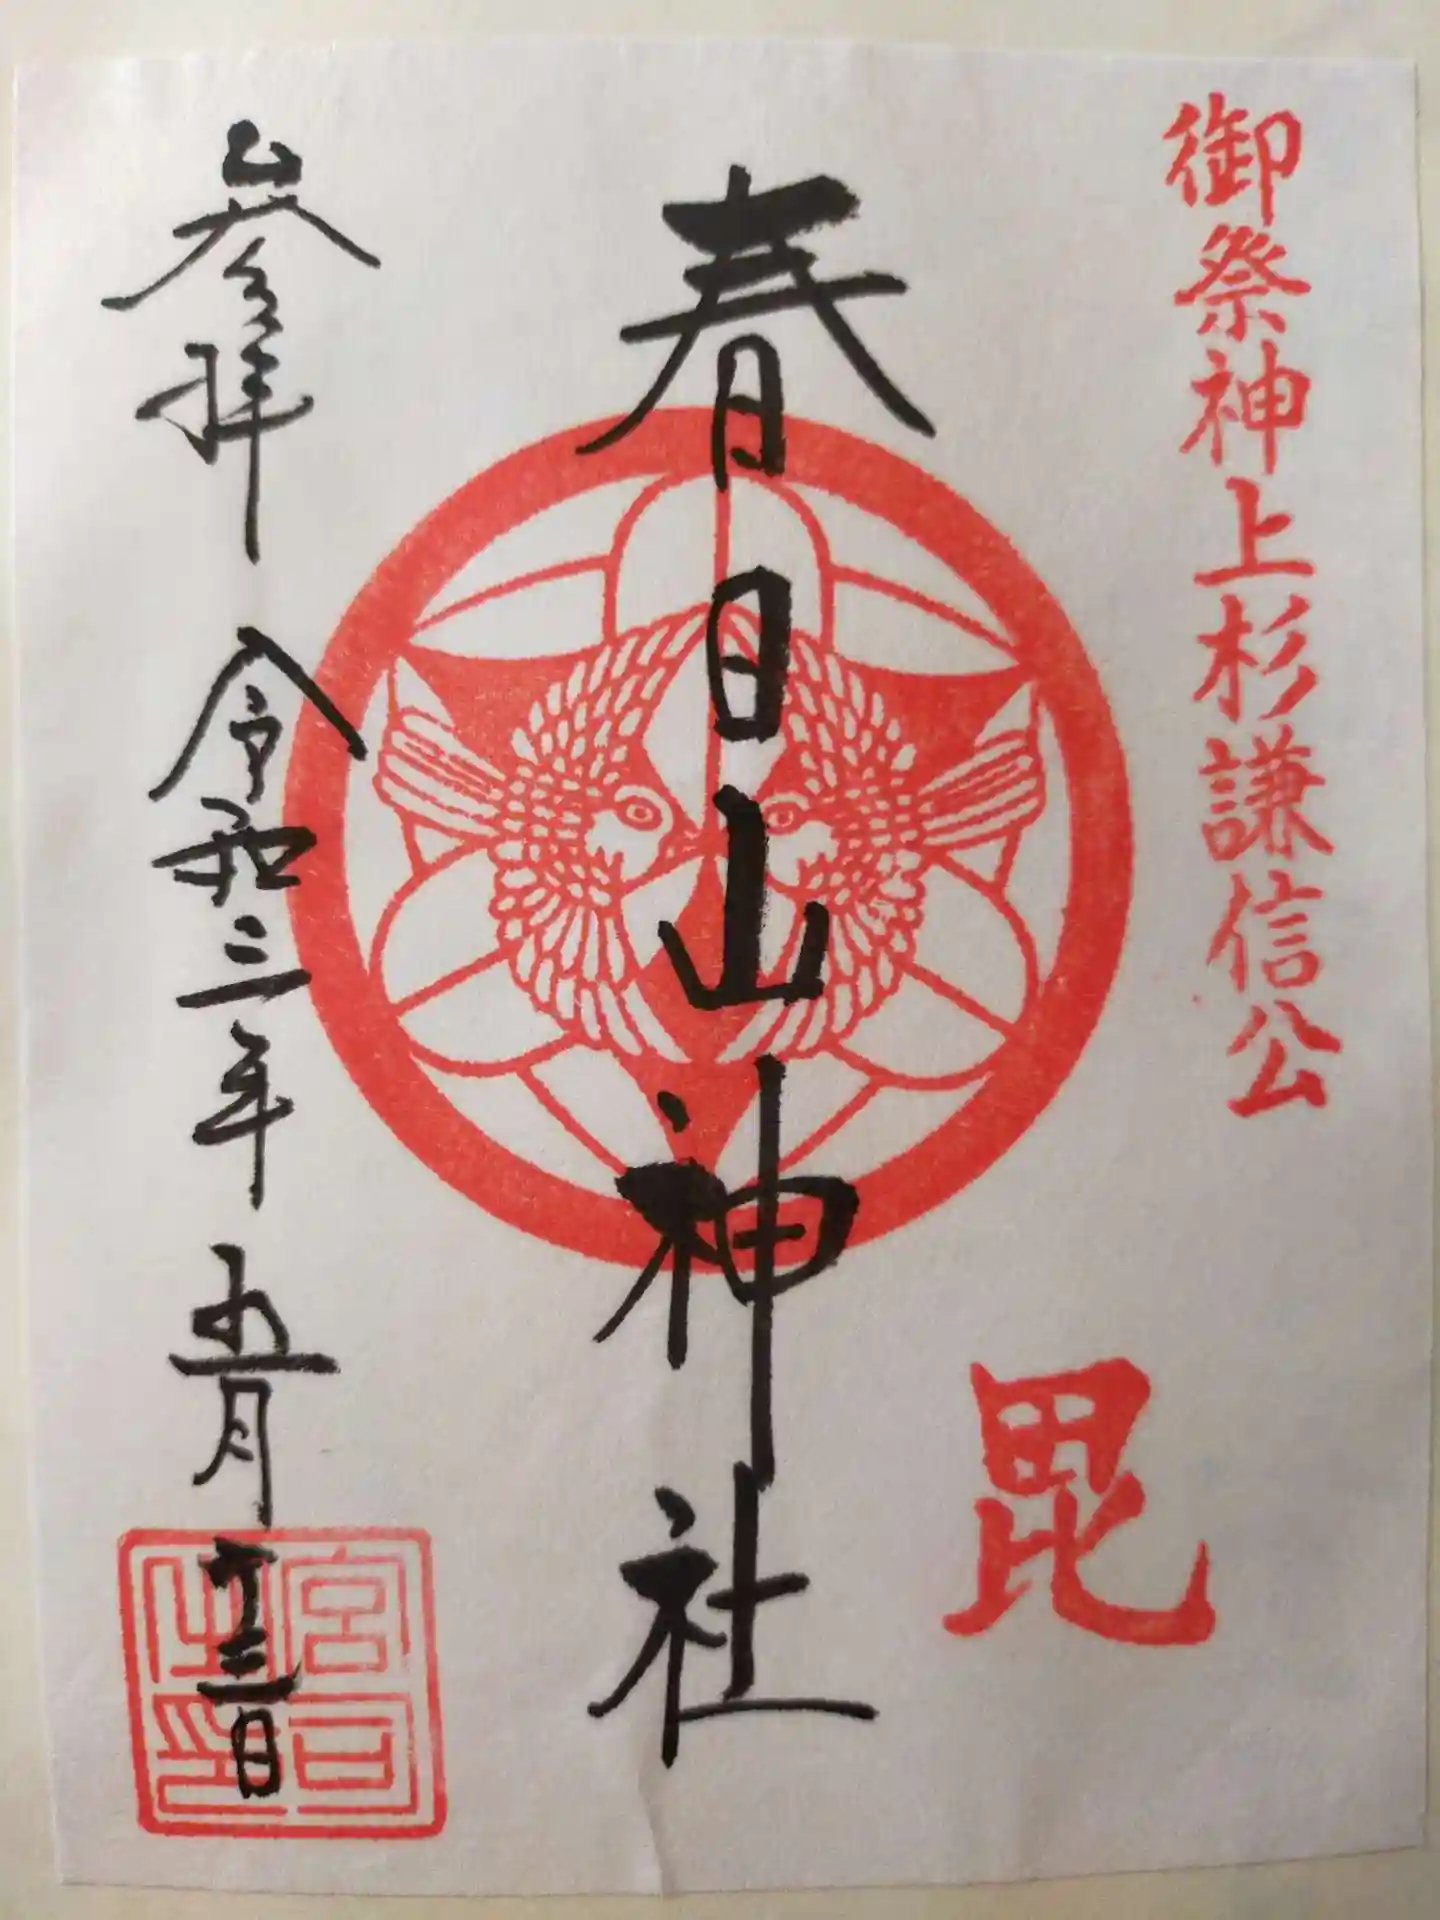 御祭神上杉謙信公
毘
春日山神社
参拝 令和三年 五月十三日
宮司之印